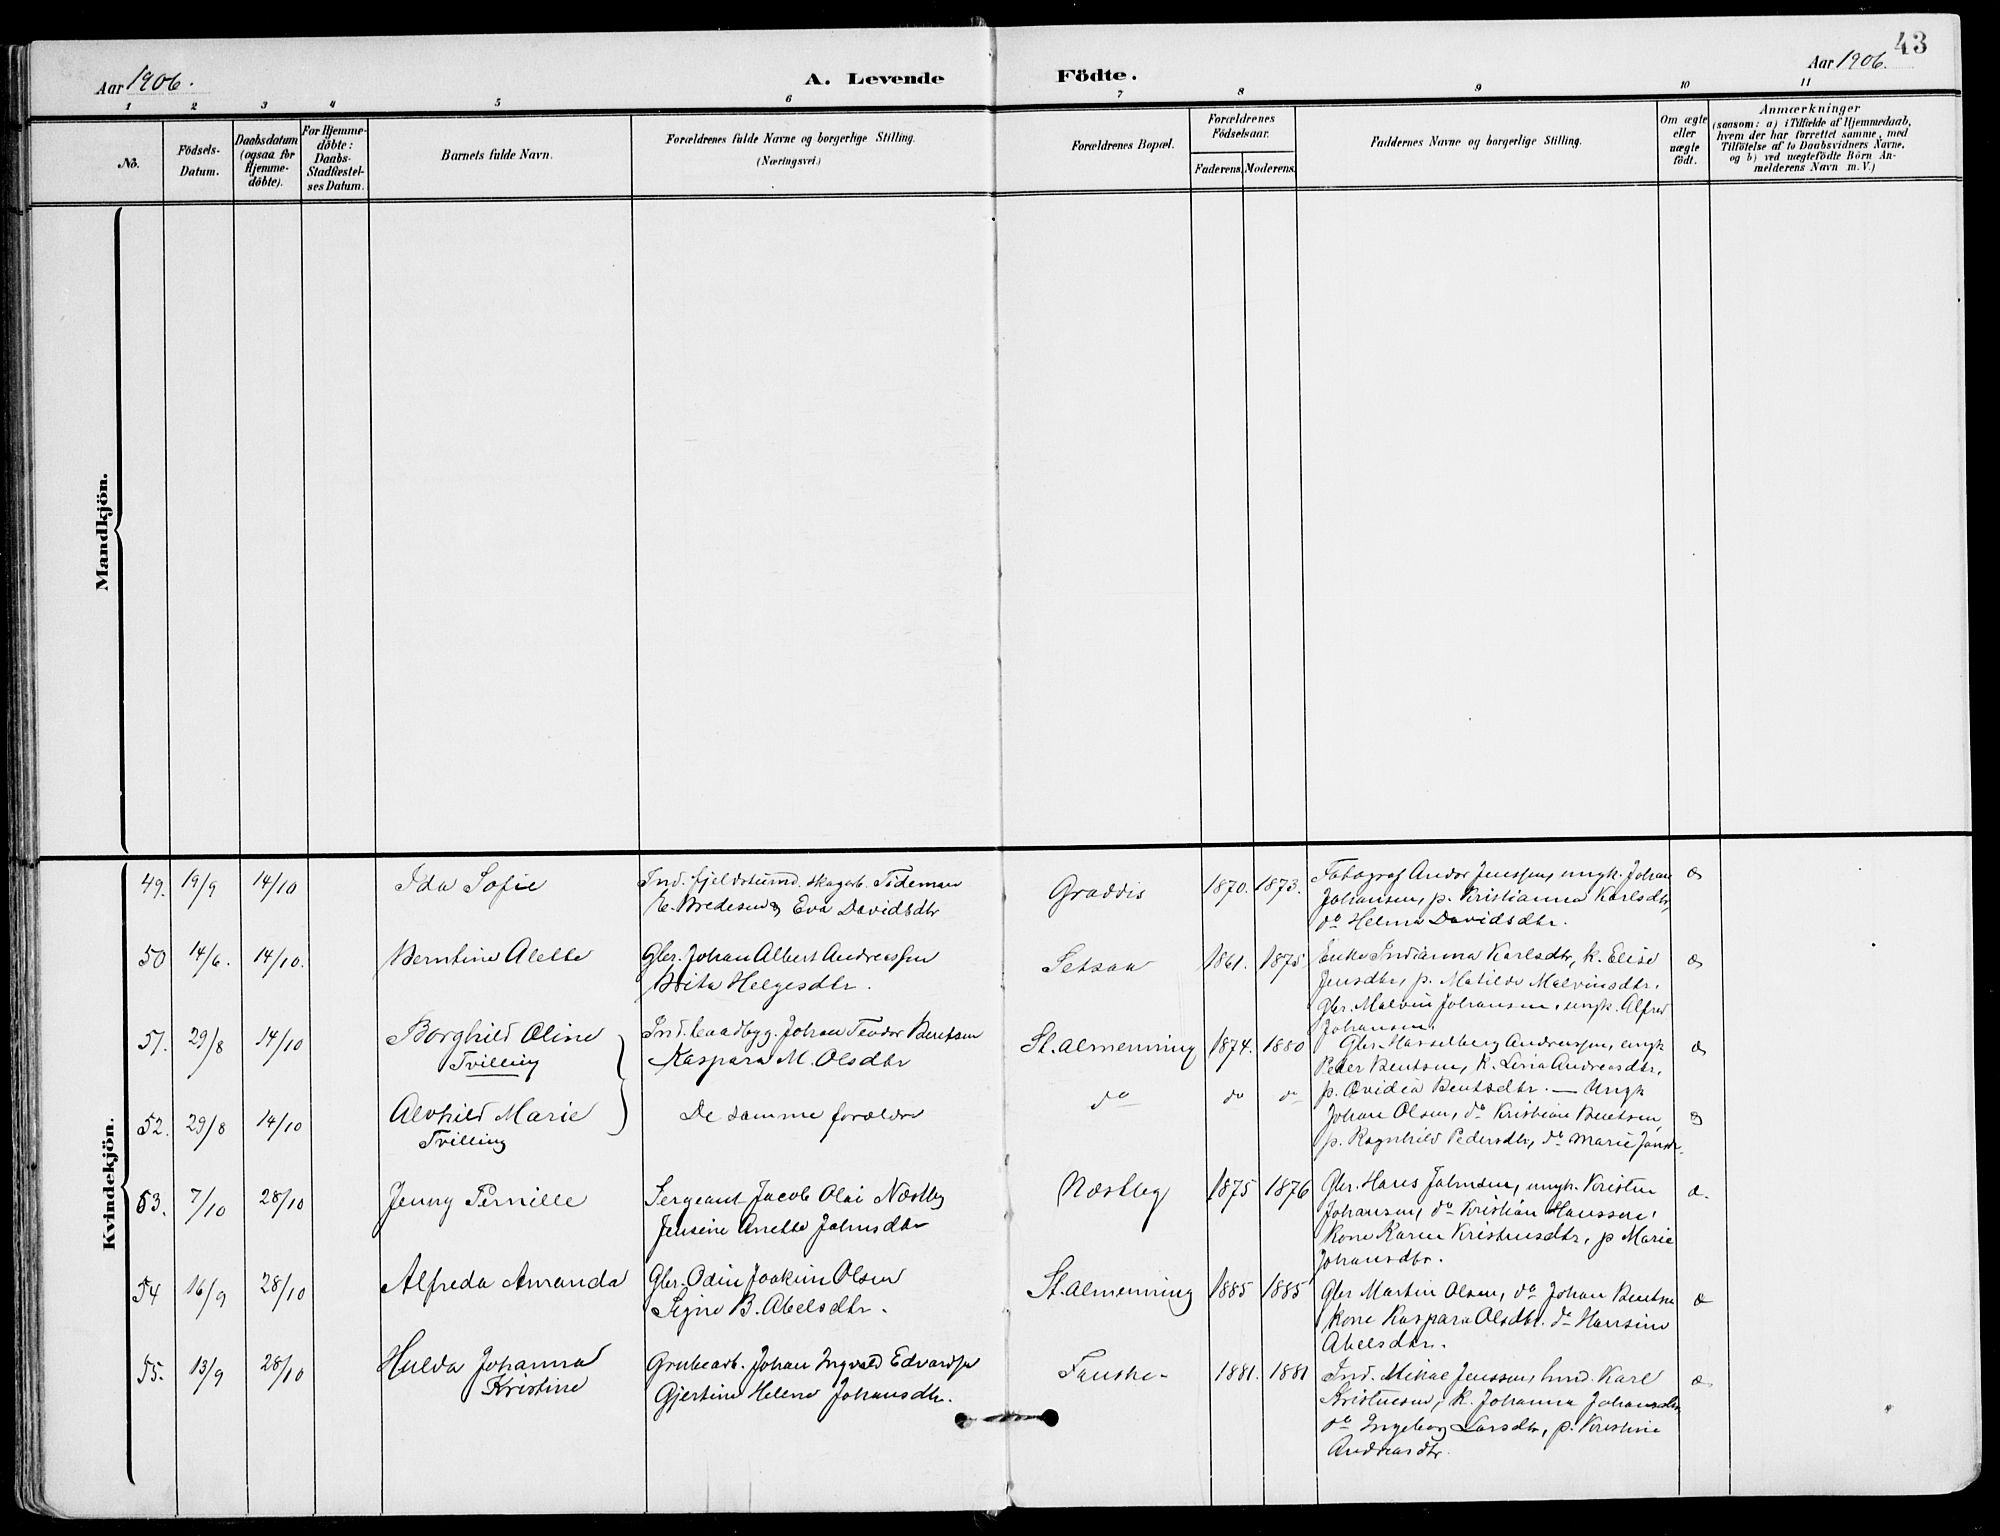 43
Aar 1906.
A. Levende Födte.
Aar 1906.
1 2 3 4 5 6 7 8 9 10 11
No.
Födsels-Datum.
Daabsdatum (ogsaa for Hjemme-döbte).
For Hjemme-döbte: Daabs-Stadfæstel-ses Datum.
Barnets fulde Navn.
Forældrenes fulde Navne og borgerlige Stilling.
(Næringsvei.)
Forældrenes Bopæl.
Forældrenes Födselsaar.
Faderens. Moderens.
Faddernes Navne og borgerlige Stilling.
Om ægte eller uægte födt.
Anmærkninger
(saasom: a) i Tilfælde af Hjemmedaab,
hvem der har forrettet samme, med
Tilföielse af to Daabsvidners Navne,
og b) ved uægtefödte Börn An-
melderens Navn m.V.)
Mandkjön.
Kvindekjön.
49. 19/9 14/10 Ida Sofie
Ind. fjeldstuemd. skogarb. Tideman
E. Bredesen & Eva Davidsdtr
Graddis 1870. 1873.
Fotograf Andor Jenssen, ungk. Johan
Johansen, p. Kristianna Karlsdtr,
do Helma Davidsdtr.
æ
50 14/6. 14/10. Berntine Alette
Gbr. Johan Albert Andreassen
Brita Helgesdtr.
Setsaa 1861. 1875
Enke Indianna Karlsdtr, k. Elise
Jensdtr, p. Matilde Malvinsdtr.
Gbr. Malvin Johansen, ungk. Alfred
Johansen.
æ
51. 29/8 14/10 Borghild Oline
Tvilling
Ind. baadbyg. Johan Teodor Bentsen
Kaspara M. Olsdtr
St. almenning 1874. 1880
Gbr. Hasselberg Andreassen, ungk
Peter Bentsen, k. Lina Andreasdtr,
p. Ovidia Bentsdtr. — Ungk
æ
52. 29/8 14/10 Alvhild Marie
Tvilling
De samme forældre
do do do
Johan Olsen, do Kristian Bentsen,
p. Ragnhild Pedersdtr, do Marie Jansdtr.
æ
53. 7/10 28/10 Jenny Pernille
Sergeant Jacob Olai Næstby
Jensine Anette Johnsdtr
Næstby 1875 1876
Gbr. Hans Johnsen, ungk. Kristen
Johansen, do Kristian Hanssen.
Kone Karen Kristensdtr, p Marie
Johansdtr.
æ.
54 16/9 28/10 Alfreda Amanda
Gbr. Odin Joakim Olsen
Signe B. Abelsdtr.
St. almenning 1885 1885
Gbr Martin Olsen, do Johan Bentsen
kone Kaspara Olsdtr. do Hansine
Abelsdtr.
æ
55. 13/9 28/10 Hulda Johanna
Kristine
Grubearb. Johan Ingvald Edvardsen
Gjertine Helene Johansdtr.
Fauske- 1881. 1881
Ind. Mikal Jenssen, Ind. Karl
Kristensen, k. Johanna Johansdtr
do Ingeborg Larsdtr, p. Kristine
Andreasdtr.
æ